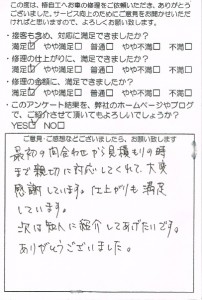 この度は、桶自工へお車の修理をご依頼いただき、ありがとう
ございました。サービス向上のためにご意見をお聞かせいただ
ければと思いますので、よろしくお願い致します。
・接客も含め、対応に満足できましたか?
満足☑ やや満足□ 普通□ やや不満□ 不満□
・修理の仕上がりに、満足できましたか?
満足☑ やや満足□ 普通□ やや不満□ 不満□
・修理の金額に、満足できましたか?
満足☑ やや満足□ 普通□ やや不満□ 不満□
・このアンケート結果を、弊社のホームページやブログ
で、ご紹介させて頂いてもよろしいでしょうか?
YES☑ NO□
ご意見・ご感想などございましたら、お願い致します
最初の問合わせから見積もりの時
まで親切に対応してくれて大変
感謝しています。仕上がりも満足
しています。
次は知人に紹介してあげたいです。
ありがとうございました。